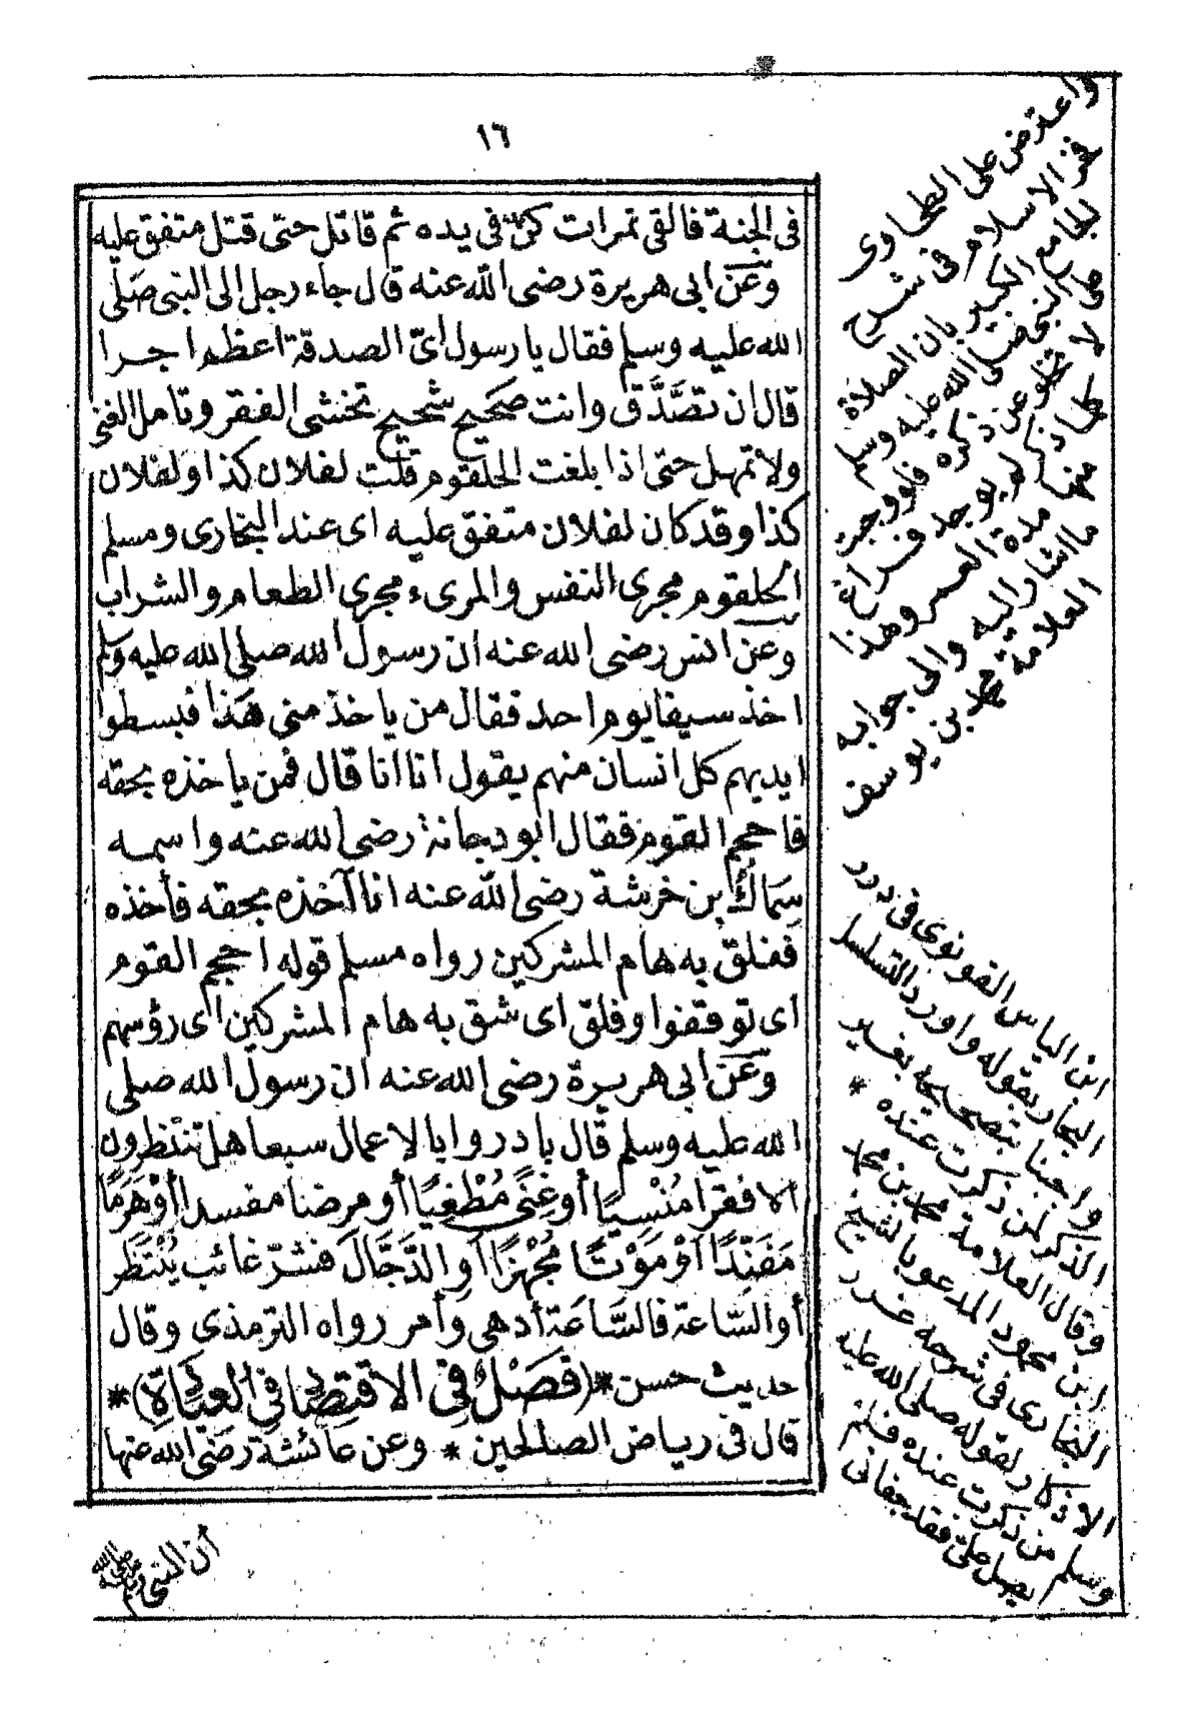 ١٦
فى الجنة فالقى تمرات كن فى يده ثم قاتل حتى قتل متفق عليه
وعن ابى هريرة رضى الله عنه قال جاء رجل الى النبى صلى
الله عليه وسلم فقال يا رسول اىّ الصدقة اعظم اجرا
قال ان تصَّدَّق وانت صحيح شحيح تخشى الفقر وتامل الغنى
ولا تمهل حتى اذا بلغت الحلقوم قلت لفلان كذا ولفلان
كذا وقد كان لفلان متفق عليه اى عند البخارى ومسلم
الحلقوم مجرى النفس والمرىء مجرى الطعام والشراب
وعن انس رضى الله عنه ان رسول الله صلى الله عليه وسلم
اخذ سيفا يوم احد فقال من ياخذ منى هذا فبسطوا
ايديهم كل انسان منهم يقول انا انا قال فمن ياخذه بحقه
فاحجم القوم فقال ابو دجانة رضى الله عنه واسمه
سماك بن خرشة رضى الله عنه انا آخذه بحقه فأخذه
ففلق به هام المشركين رواه مسلم قوله احجم القوم
اى توقفوا وفلق اى شق به هام المشركين اى رؤسهم
وعن ابى هريرة رضى الله عنه ان رسول الله صلى
الله عليه وسلم قال بادروا بالاعمال سبعا هل تنتظرون
الا فقرا مُنْسِيًا أو غِنًى مُطْغِيًا أو مرضا مفسدا أو هَرَمًا
مَفَنِّدًا أوْ مَوْتًا مُجْهِزًا أوِ الدَّجَّالَ فشرّ غائب يُنْتَظَر
أو السَّاعة فالسَّاعَة أدهى وأمر رواه الترمذى وقال
حديث حسن * (فَصْلٌ فِى الاقتِصَادِ فِى العِبَادَةِ) *
قال فى رياض الصالحين * وعن عائشة رضى الله عنها
أن النبى صلى الله عليه وسلم
واعترض على الطحاوى
فخر الاسلام فى شرح
الجامع الكبير بان الصلاة
على النبى صلى الله عليه وسلم
لا تخلو عن ذكره فلو وجبت
كلما ذكر لم يوجد فراغ
منها مدة العمر وهذا
ما اشار اليه والى جوابه
العلامة محمد بن يوسف
ابن الياس القونوى فى درر
البحار بقوله واورد التسلسل
واجبنا بتصحيحه بغير
الذكر لمن ذكرت عنده *
وقال العلامة محمد بن محمد
ابن محمود المدعو بالشيخ
البخارى فى شرحه غرر
الاذكار لقوله صلى الله عليه
وسلم من ذكرت عنده فلم
يصل علىّ فقد جفانى